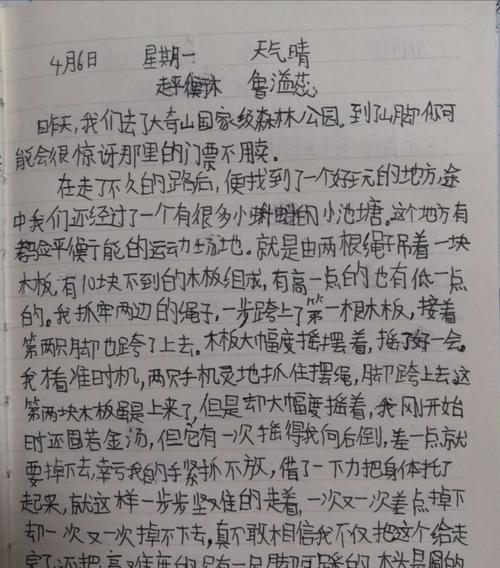 4月6日 星期一 天气晴
走平衡木 鲁溢蕊
昨天,我们去了大奇山国家级森林公园。到了山脚你可
能会很惊讶那里的门票不用卖。
在走了不久的路后,便找到了一个好玩的地方,途
中我们还经过了一个有很多小蝌蚪的小池塘。这个地方有
考验平衡了能的运动场地。就是由两根绳子吊着一块
木板,有10块不到的木板组成,有高一点的也有低一点
的。我抓牢两边的绳子,一步跨上了第一根木板,接着
第两只脚也跨了上去。木板大幅度摇摆着,摇了好一会。
我看准时机,两只手机灵地抓住摆绳,脚跨上去,这
第两块木板虽是上来了,但是却大幅度摇着,我刚开始
时还固若金汤,但它有一次摇得我向后倒,差一点就
要掉下去,幸亏我的手紧抓不放,借了一下力把身体托了
起来,就这样一步步坚难的走着,一次又一次差点掉下
却一次又一次掉不下去,真不敢相信我不仅把这个给走
完了还把高难度的只有一只脚可踩的,木头是圆的